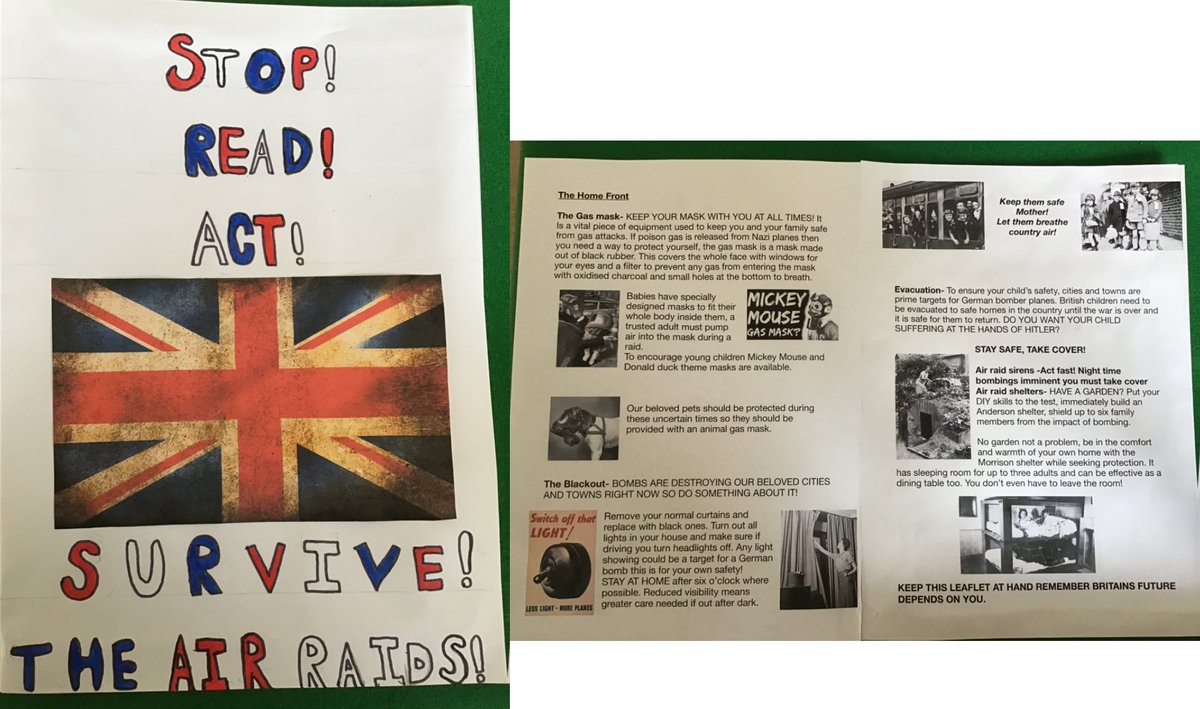 STOP!
READ!
ACT!
SURVIVE!
THE AIR RAIDS!
The Home Front
The Gas mask- KEEP YOUR MASK WITH YOU AT ALL TIMES! It
Is a vital piece of equipment used to keep you and your family safe
from gas attacks. If poison gas is released from Nazi planes then
you need a way to protect yourself, the gas mask is a mask made
out of black rubber. This covers the whole face with windows for
your eyes and a filter to prevent any gas from entering the mask
with oxidised charcoal and small holes at the bottom to breath.
Babies have specially
designed masks to fit their
whole body inside them, a
trusted adult must pump
air into the mask during a
raid.
MICKEY
MOUSE
GAS MASK?
To encourage young children Mickey Mouse and
Donald duck theme masks are available.
Our beloved pets should be protected during
these uncertain times so they should be
provided with an animal gas mask.
The Blackout- BOMBS ARE DESTROYING OUR BELOVED CITIES
AND TOWNS RIGHT NOW SO DO SOMETHING ABOUT IT!
Switch off that
LIGHT!
LESS LIGHT - MORE PLANES
Remove your normal curtains and
replace with black ones. Turn out all
lights in your house and make sure if
driving you turn headlights off. Any light
showing could be a target for a German
bomb this is for your own safety!
STAY AT HOME after six o'clock where
possible. Reduced visibility means
greater care needed if out after dark.
Keep them safe
Mother!
Let them breathe
country air!
Evacuation- To ensure your child's safety, cities and towns are
prime targets for German bomber planes. British children need to
be evacuated to safe homes in the country until the war is over and
it is safe for them to return. DO YOU WANT YOUR CHILD
SUFFERING AT THE HANDS OF HITLER?
STAY SAFE, TAKE COVER!
Air raid sirens -Act fast! Night time
bombings imminent you must take cover
Air raid shelters- HAVE A GARDEN? Put your
DIY skills to the test, immediately build an
Anderson shelter, shield up to six family
members from the impact of bombing.
No garden not a problem, be in the comfort
and warmth of your own home with the
Morrison shelter while seeking protection. It
has sleeping room for up to three adults and can be effective as a
dining table too. You don't even have to leave the room!
KEEP THIS LEAFLET AT HAND REMEMBER BRITAINS FUTURE
DEPENDS ON YOU.